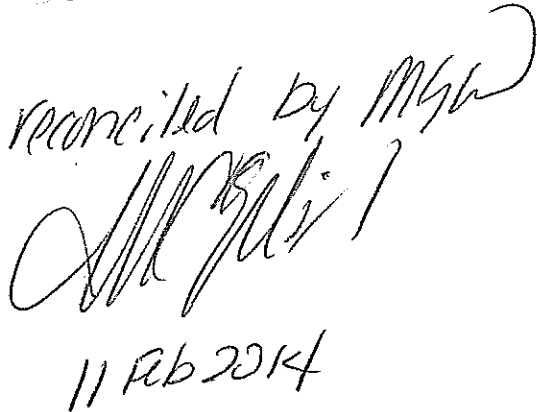 reconciled by MGW
11 Feb 2014